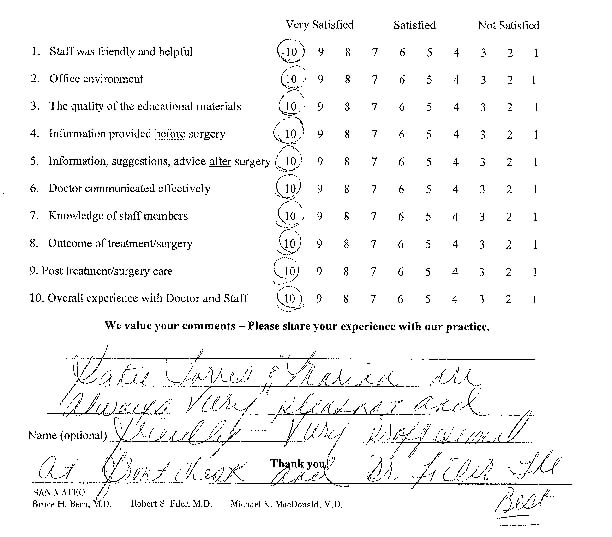 Very Satisfied Satisfied Not Satisfied
1. Staff was friendly and helpful 10 9 8 7 6 5 4 3 2 1
2. Office environment 10 9 8 7 6 5 4 3 2 1
3. The quality of the educational materials 10 9 8 7 6 5 4 3 2 1
4. Information provided before surgery 10 9 8 7 6 5 4 3 2 1
5. Information, suggestions, advice after surgery 10 9 8 7 6 5 4 3 2 1
6. Doctor communicated effectively 10 9 8 7 6 5 4 3 2 1
7. Knowledge of staff members 10 9 8 7 6 5 4 3 2 1
8. Outcome of treatment/surgery 10 9 8 7 6 5 4 3 2 1
9. Post treatment/surgery care 10 9 8 7 6 5 4 3 2 1
10. Overall experience with Doctor and Staff 10 9 8 7 6 5 4 3 2 1
We value your comments – Please share your experience with our practice.
Katie Torres & are
always very pleasant and
Name (optional) friendly - very
At front and Dr. the
Thank you!
Best
SAN MATEO
Bruce H. M.D. Robert S. M.D. Michael K. MacDonald, M.D.